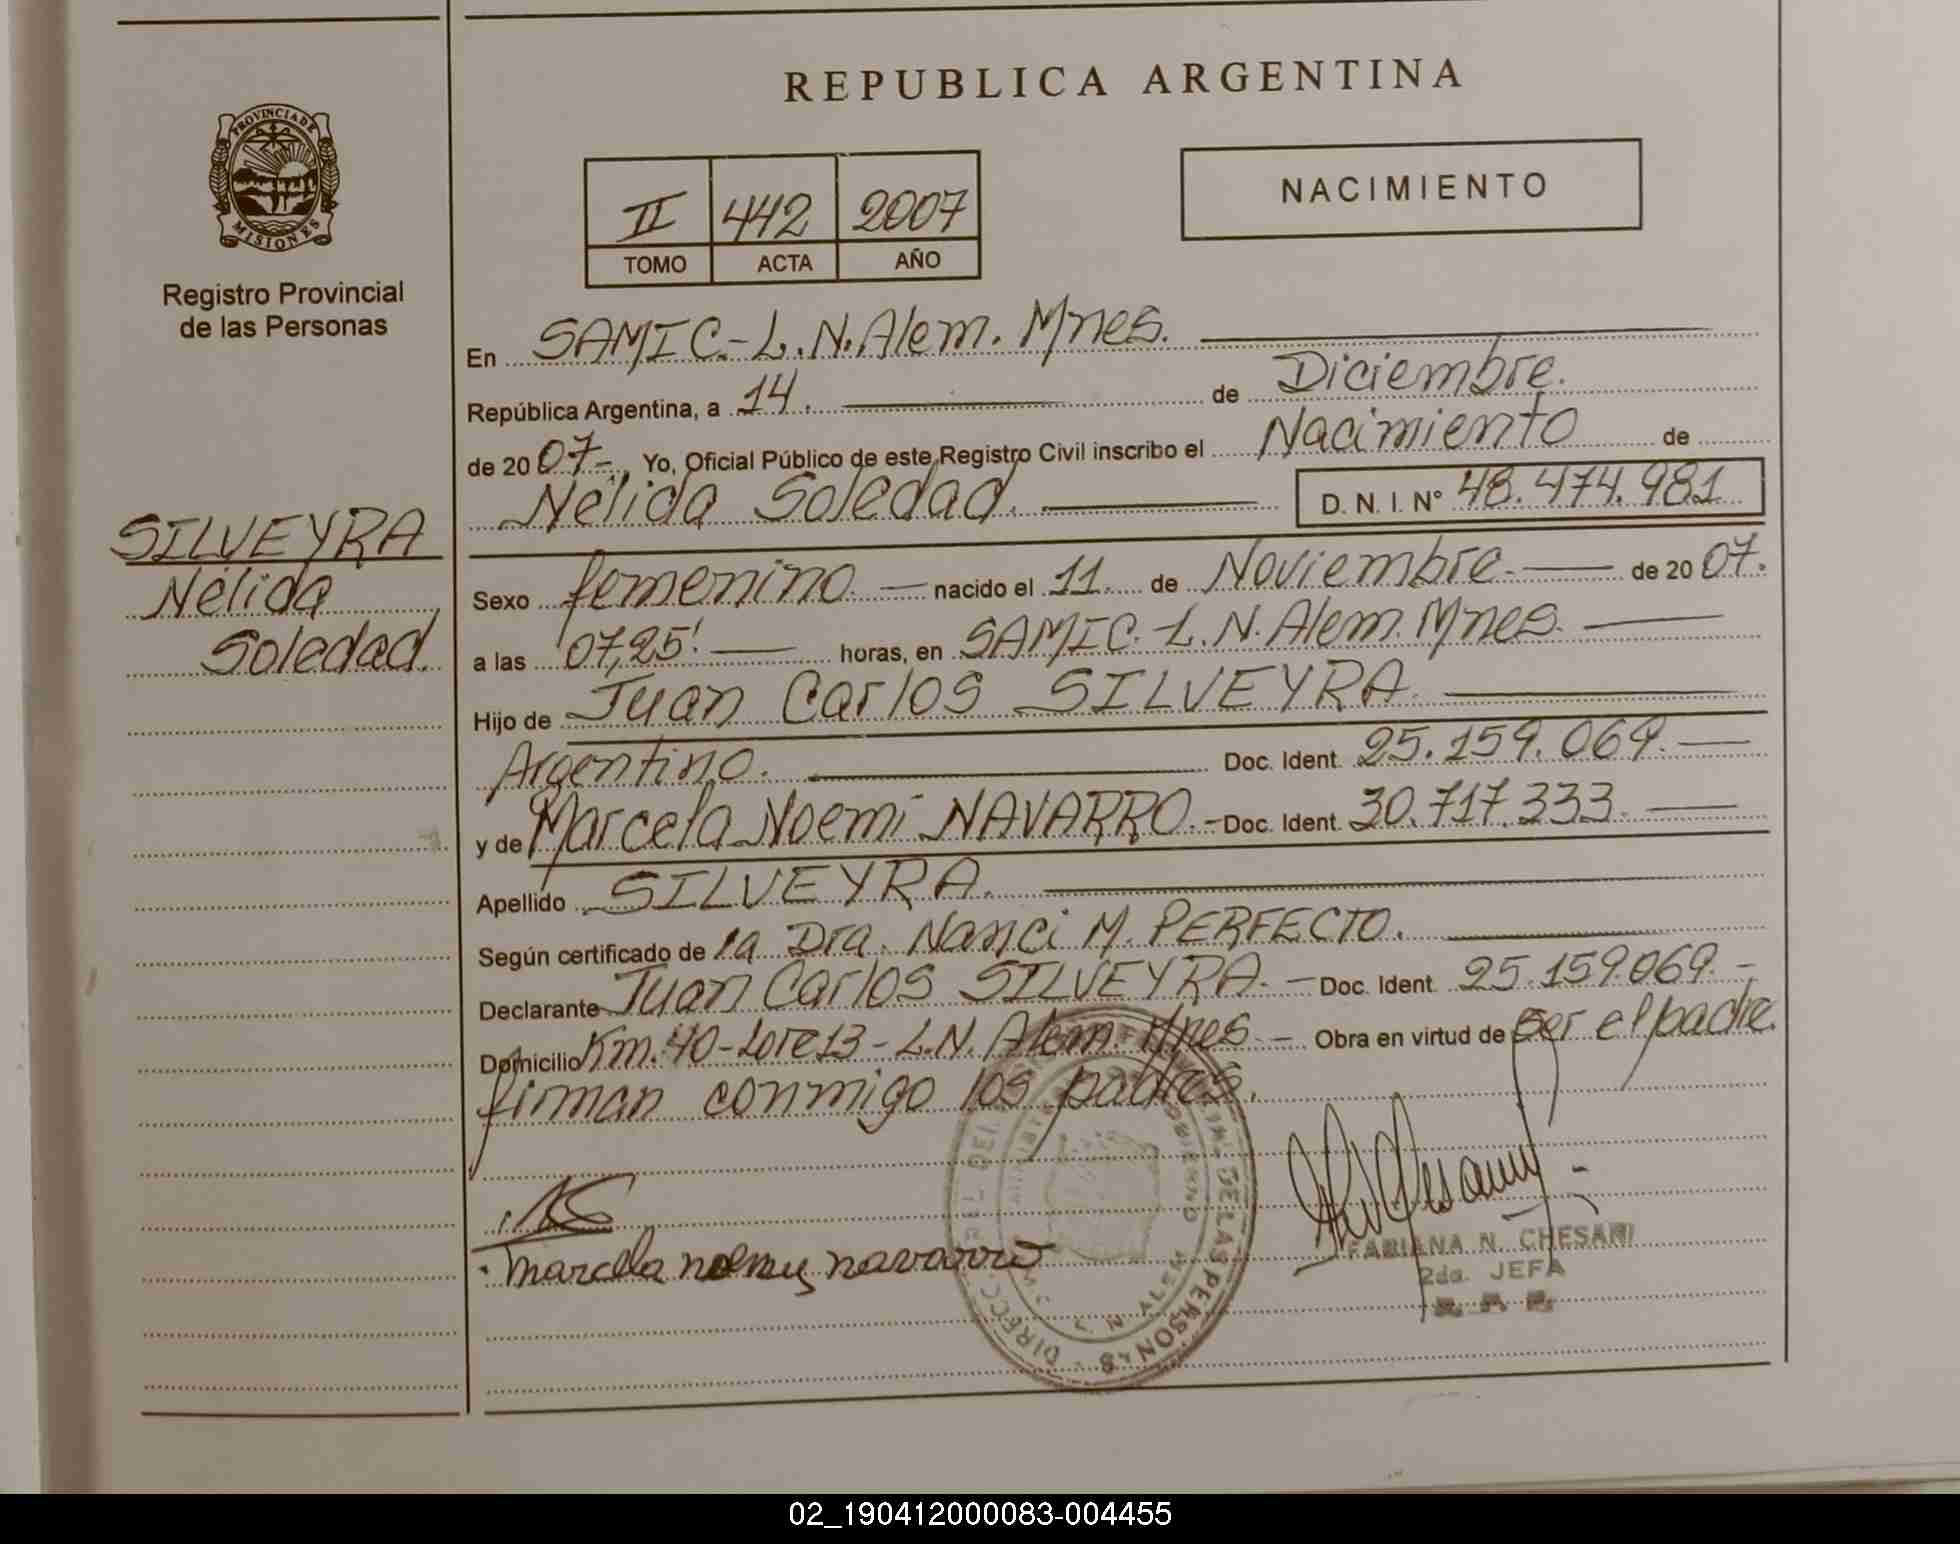 REPUBLICA ARGENTINA
PROVINCIA DE
MISIONES
Registro Provincial
de las Personas
NACIMIENTO
II 442 2007
TOMO ACTA AÑO
En SAMIC.-L.N.Alem. Mnes.
República Argentina, a 14. de Diciembre.
de 2007.- Yo, Oficial Público de este Registro Civil inscribo el Nacimiento de
Nélida Soledad. D. N. I. N° 48.474.981
SILVEYRA
Nélida
Soledad.
Sexo femenino. nacido el 11. de Noviembre. de 2007.
a las 07,25' horas, en SAMIC.-L.N.Alem. Mnes.
Hijo de Juan Carlos SILVEYRA.
Argentino. Doc. Ident. 25.159.069.
y de Marcela Noemi NAVARRO.- Doc. Ident. 30.717.333.
Apellido SILVEYRA.
Según certificado de la Dra. Nanci M. PERFECTO.
Declarante Juan Carlos SILVEYRA. - Doc. Ident. 25.159.069.-
Domicilio Km.40-Lote13-L.N. Alem. Mnes.- Obra en virtud de ser el padre.
firman conmigo los padres.
marcela noemy navarro
FABIANA N. CHESANI
2da. JEFA
DE LAS PERSONAS
DIRECC.
02_190412000083-004455